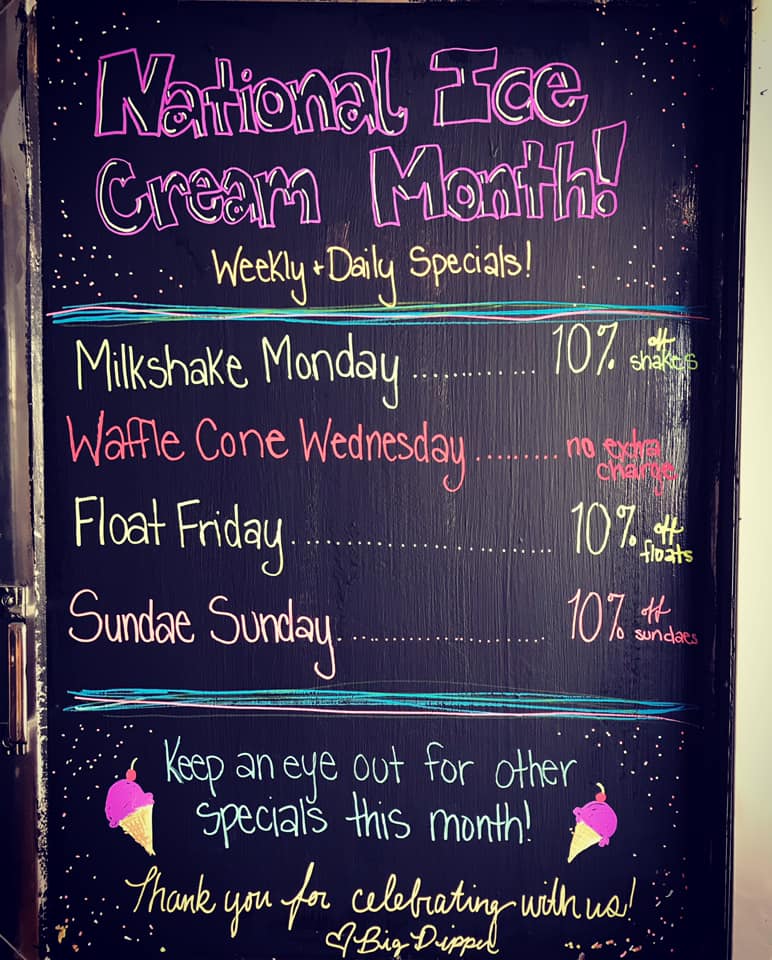 National Ice
Cream Month!
Weekly + Daily Specials!
Milkshake Monday ............ 10% off shakes
Waffle Cone Wednesday ........ no extra charge
Float Friday .......................... 10% off floats
Sundae Sunday ....................... 10% off sundaes
Keep an eye out for other
specials this month!
Thank you for celebrating with us!
♡ Big Dipper